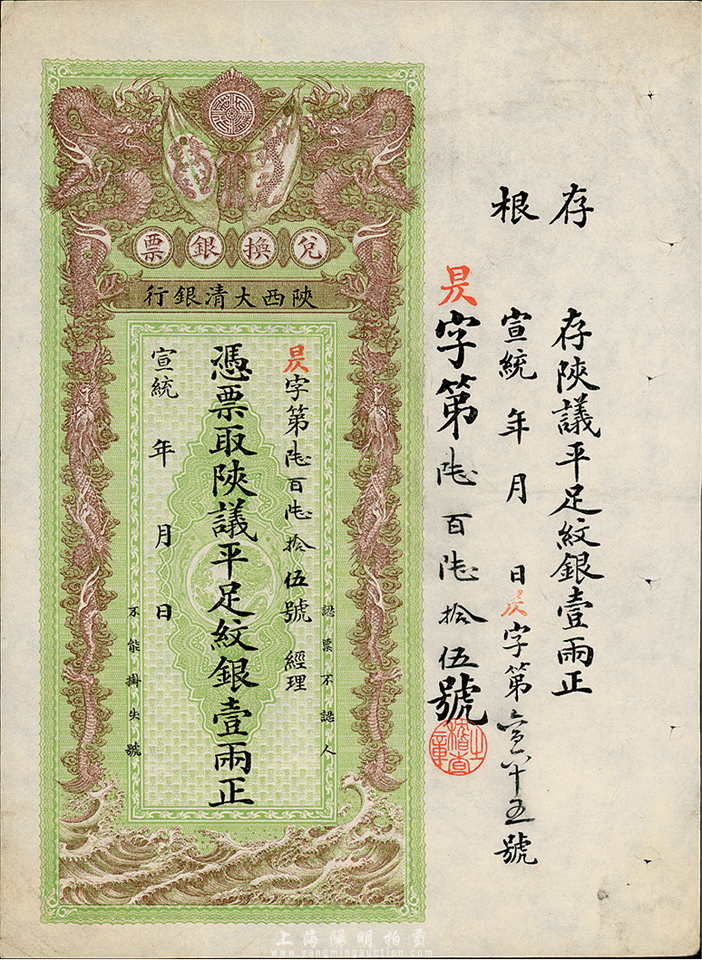 存根
存陝議平足紋銀壹兩正
宣統 年 月 日 昃字第六百六十五號
昃字第陸百陸拾伍號
稽查之章
兌換銀票
陝西大清銀行
認票不認人
昃字第陸百陸拾伍號 經理
憑票取陝議平足紋銀壹兩正
宣統 年 月 日
不能掛失號
上海陽明拍賣
www.yangmingauction.com